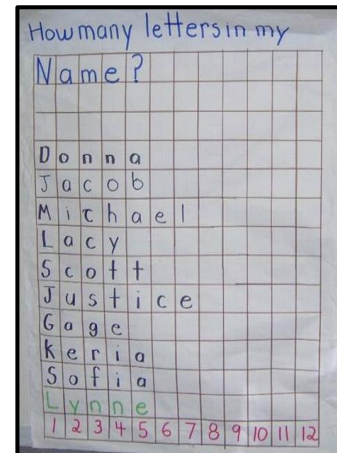 How many letters in my
Name?
Donna
Jacob
Michael
Lacy
Scott
Justice
Gage
Keria
Sofia
Lynne
1 2 3 4 5 6 7 8 9 10 11 12